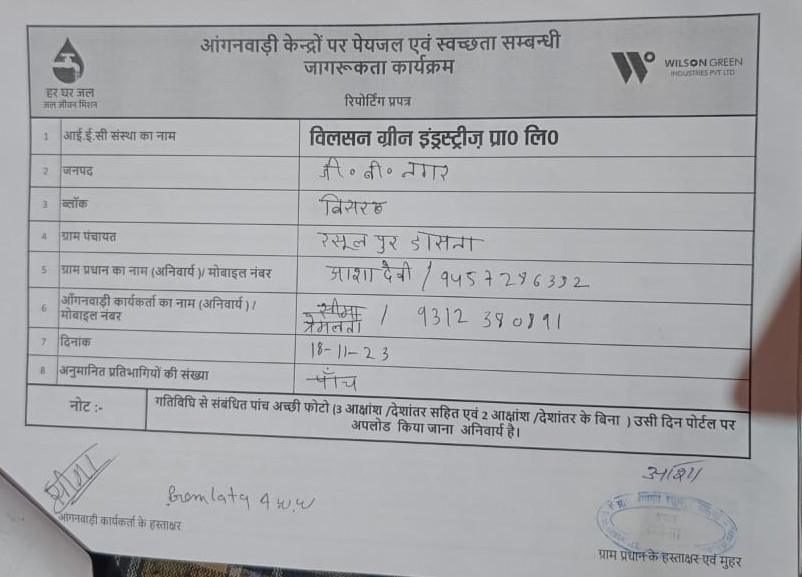 आंगनवाड़ी केन्द्रों पर पेयजल एवं स्वच्छता सम्बन्धी
जागरूकता कार्यक्रम
रिपोर्टिंग प्रपत्र
हर घर जल
जल जीवन मिशन
WILSON GREEN
INDUSTRIES PVT LTD
1 आई.ई.सी संस्था का नाम विलसन ग्रीन इंड्रस्ट्रीज़ प्रा0 लि0
2 जनपद जी॰ बी॰ नगर
3 ब्लॉक बिसरख
4 ग्राम पंचायत रसूलपुर डासना
5 ग्राम प्रधान का नाम (अनिवार्य)/ मोबाइल नंबर आशा देवी /
6 आँगनवाड़ी कार्यकर्ता का नाम (अनिवार्य) / सीमा
मोबाइल नंबर प्रेमलता /
7 दिनांक 18-11-23
8 अनुमानित प्रतिभागियों की संख्या पाँच
नोट :- गतिविधि से संबंधित पांच अच्छी फोटो (3 आक्षांश /देशांतर सहित एवं 2 आक्षांश /देशांतर के बिना ) उसी दिन पोर्टल पर
अपलोड किया जाना अनिवार्य है।
सीमा
आशा
आंगनवाड़ी कार्यकर्ता के हस्ताक्षर
ग्राम प्रधान के हस्ताक्षर एवं मुहर